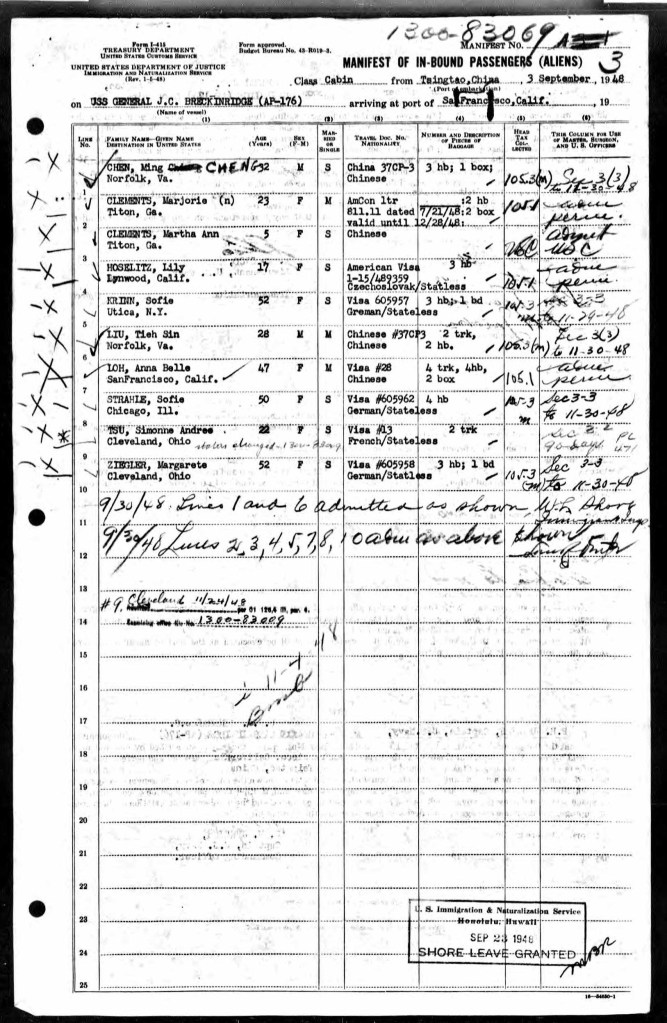 1300-83069
Form I-415
TREASURY DEPARTMENT
UNITED STATES CUSTOMS SERVICE
UNITED STATES DEPARTMENT OF JUSTICE
IMMIGRATION AND NATURALIZATION SERVICE
(Rev. 1-5-48)
Form approved.
Budget Bureau No. 43-R019-3.
MANIFEST NO.
3
MANIFEST OF IN-BOUND PASSENGERS (ALIENS)
Class Cabin from Tsingtao, China 3 September, 1948
(Port of embarkation)
on USS GENERAL J.C. BRECKINRIDGE (AP-176) arriving at port of San Francisco, Calif. , 19
(Name of vessel)
(1) (2) (3) (4) (5) (6)
LINE No. FAMILY NAME—GIVEN NAME DESTINATION IN UNITED STATES AGE (Years) SEX (F-M) MARRIED OR SINGLE TRAVEL DOC. NO. NATIONALITY NUMBER AND DESCRIPTION OF PIECES OF BAGGAGE HEAD TAX COLLECTED THIS COLUMN FOR USE OF MASTER, SURGEON, AND U. S. OFFICERS
1 CHEN, Ming CHENG 32 M S China 37CP-3 3 hb; 1 box; 105.3(m) Sec 3(3)
Norfolk, Va. Chinese to 11-30-48
2 CLEMENTS, Marjorie (n) 23 F M AmCon ltr :2 hb 105.1 adm
Titon, Ga. 811.11 dated 7/21/48:2 box perm.
valid until 12/28/48:
3 CLEMENTS, Martha Ann 5 F S Chinese USC admit
Titon, Ga. USC
4 HOSELITZ, Lily 17 F S American Visa 3 hb adm
Lynwood, Calif. 1-15/489359 105.1 perm
Czechoslovak/Statless
5 KRINN, Sofie 52 F S Visa 605957 3 hb; 1 bd 105.3 3-3
Utica, N.Y. Greman/Statless to 11-29-48
6 LIU, Tieh Sin 28 M M Chinese #37CP3 2 trk, Sec 3(3)
Norfolk, Va. Chinese 2 hb. 105.3(m) to 11-30-48
7 LOH, Anna Belle 47 F M Visa #28 4 trk, 4hb, adm
SanFrancisco, Calif. Chinese 2 box 105.1 perm
8 STRAHLE, Sofie 50 F S Visa #605962 4 hb 105.3 Sec 3-3
Chicago, Ill. German/Stateless m to 11-30-48
9 TSU, Simonne Andree 22 F S Visa #13 2 trk Sec 3-2
Cleveland, Ohio status changed French/Stateless 90 days
10 ZIEGLER, Margarete 52 F S Visa #605958 3 hb; 1 bd 105.3 Sec 3-3
Cleveland, Ohio German/Statless (m) to 11-30-48
9/30/48 Lines 1 and 6 admitted as shown
9/30/48 Lines 2, 3, 4, 5, 7, 8, 10 adm as above shown
11
12
13
#9. Cleveland 11/24/48
14 Examining office file No. 1300-83009
15
16
17
18
19
20
21
22
23
24
25
U. S. Immigration & Naturalization Service
Honolulu, Hawaii
SEP 23 1948
SHORE LEAVE GRANTED
16—54650-1